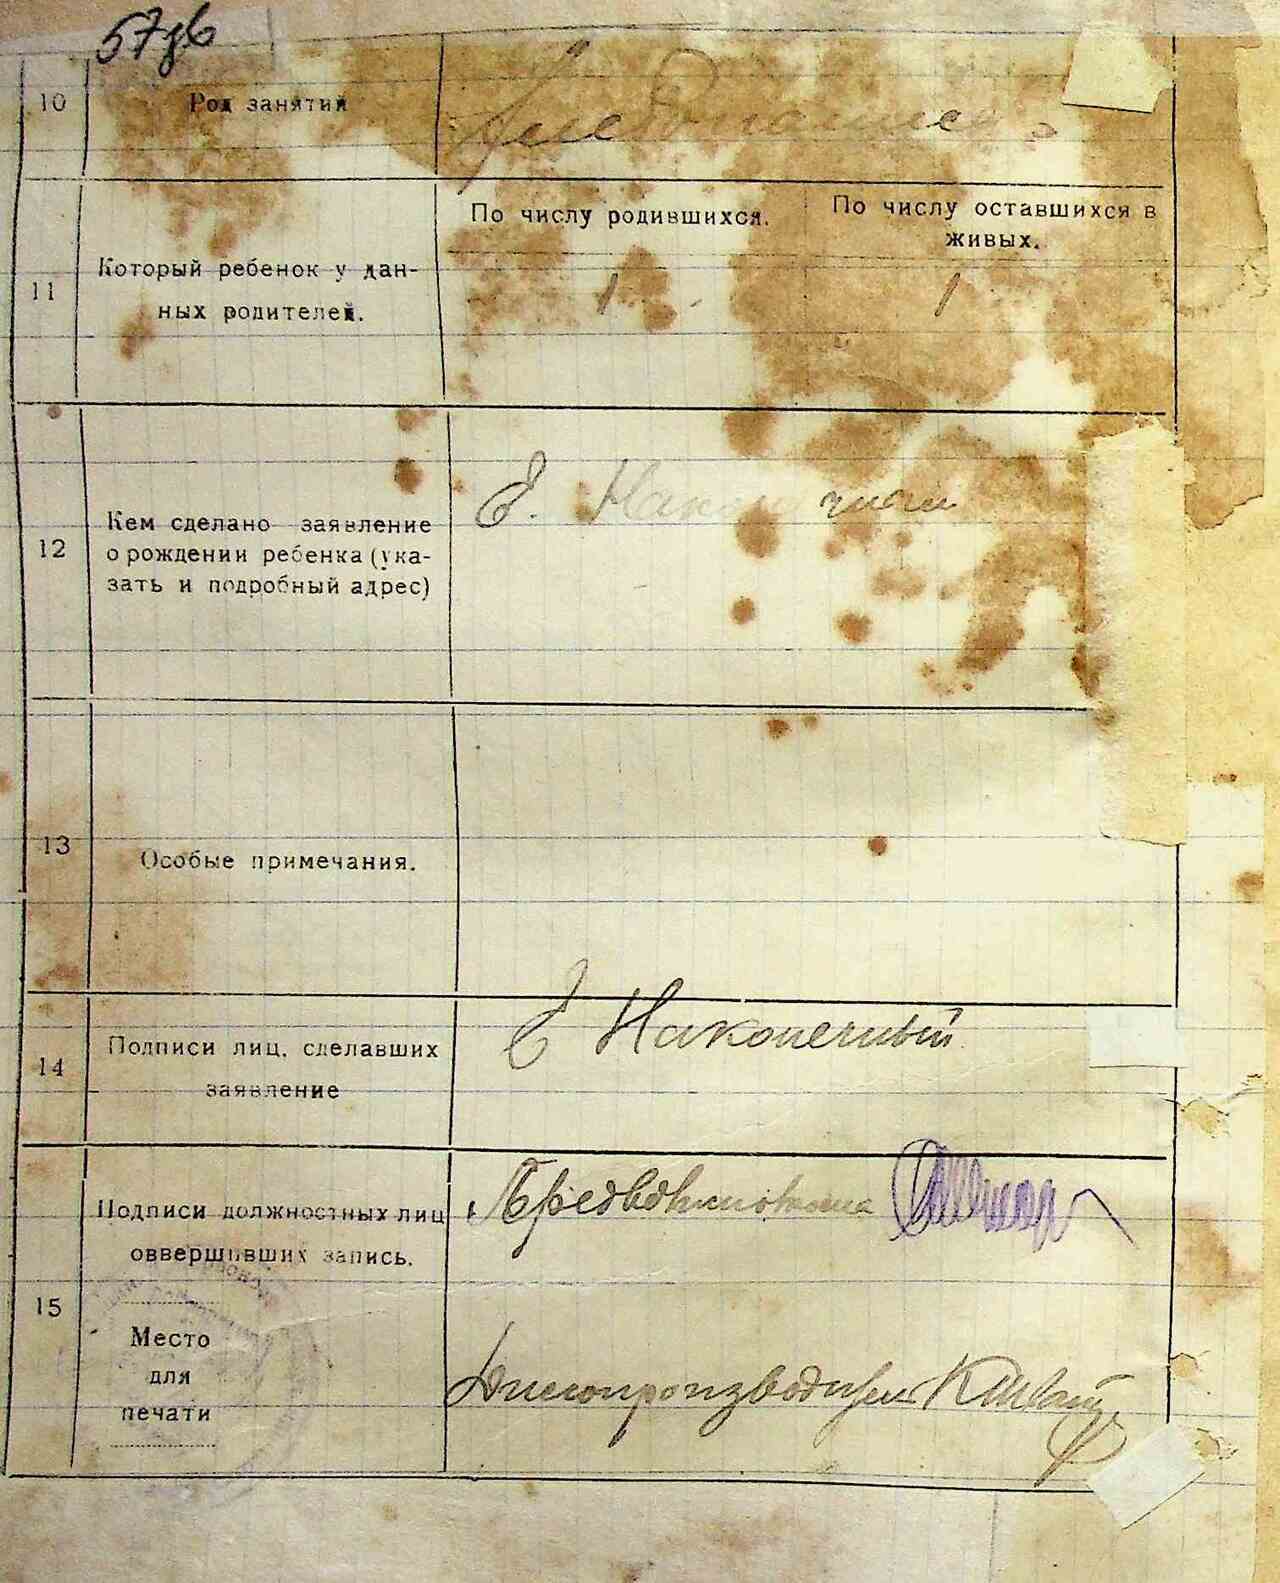 57 об
10 Род занятий Хлебопашец
11 Который ребенок у дан-
ных родителей.
По числу родившихся.
По числу оставшихся в
живых.
1 1
12 Кем сделано заявление
о рождении ребенка (ука-
зать и подробный адрес)
13 Особые примечания.
14 Подписи лиц, сделавших
заявление
Наконечный
15 Подписи должностных лиц
оввершивших запись.
Место
для
печати
Делопроизводитель